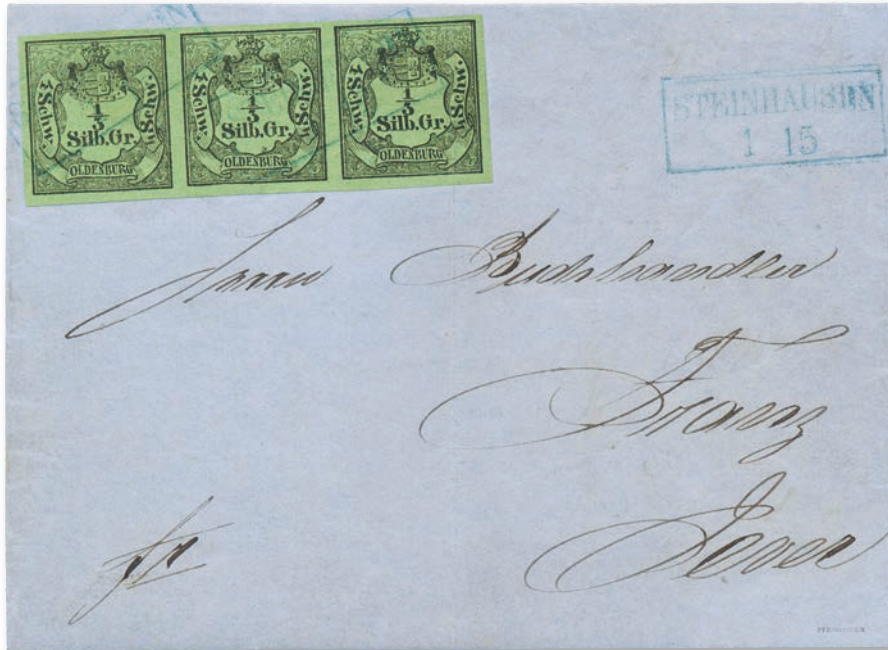 4 Schw. 1/3 Silb.Gr. 4 Schw. OLDENBURG
4 Schw. 1/3 Silb.Gr. 4 Schw. OLDENBURG
4 Schw. 1/3 Silb.Gr. 4 Schw. OLDENBURG
STEINHAUSEN
1 15
Herrn Buchhandler
Franz
Jever
fr